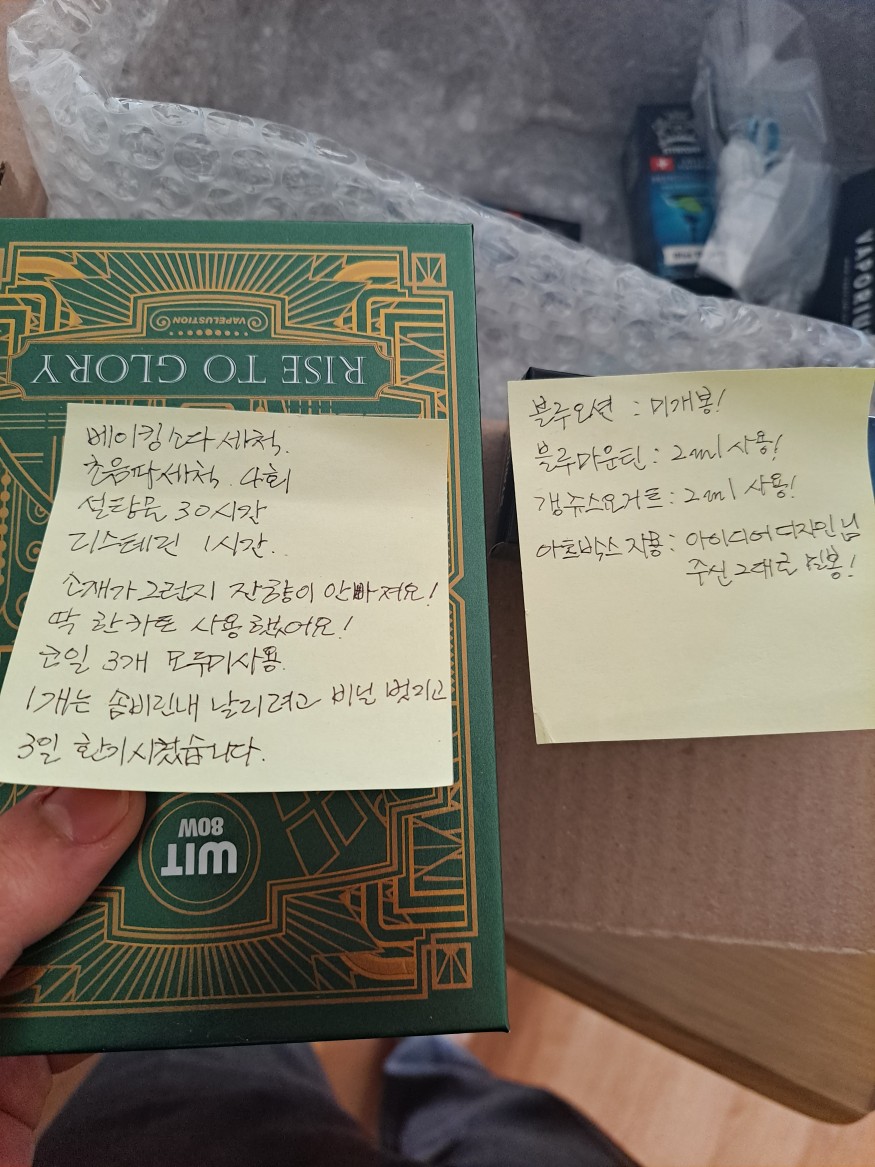 VAPELUSTION
RISE TO GLORY
베이킹소다 세척.
초음파세척. 4회
설탕물 30시간
리스테린 1시간..
소재가그런지 잔량이 안빠져요!
딱 한카토 사용했어요!
코일 3개 모두미사용.
1개는 솜비린내 날리려고 비닐 벗기고
3일 환기시켰습니다.
WIT
80W
블루오션 : 미개봉!
블루마운틴 : 2ml 사용!
갱쥬스요거트 : 2ml 사용!
아트박스 자몽 : 아이디어디자인님
주신그대로 밀봉!